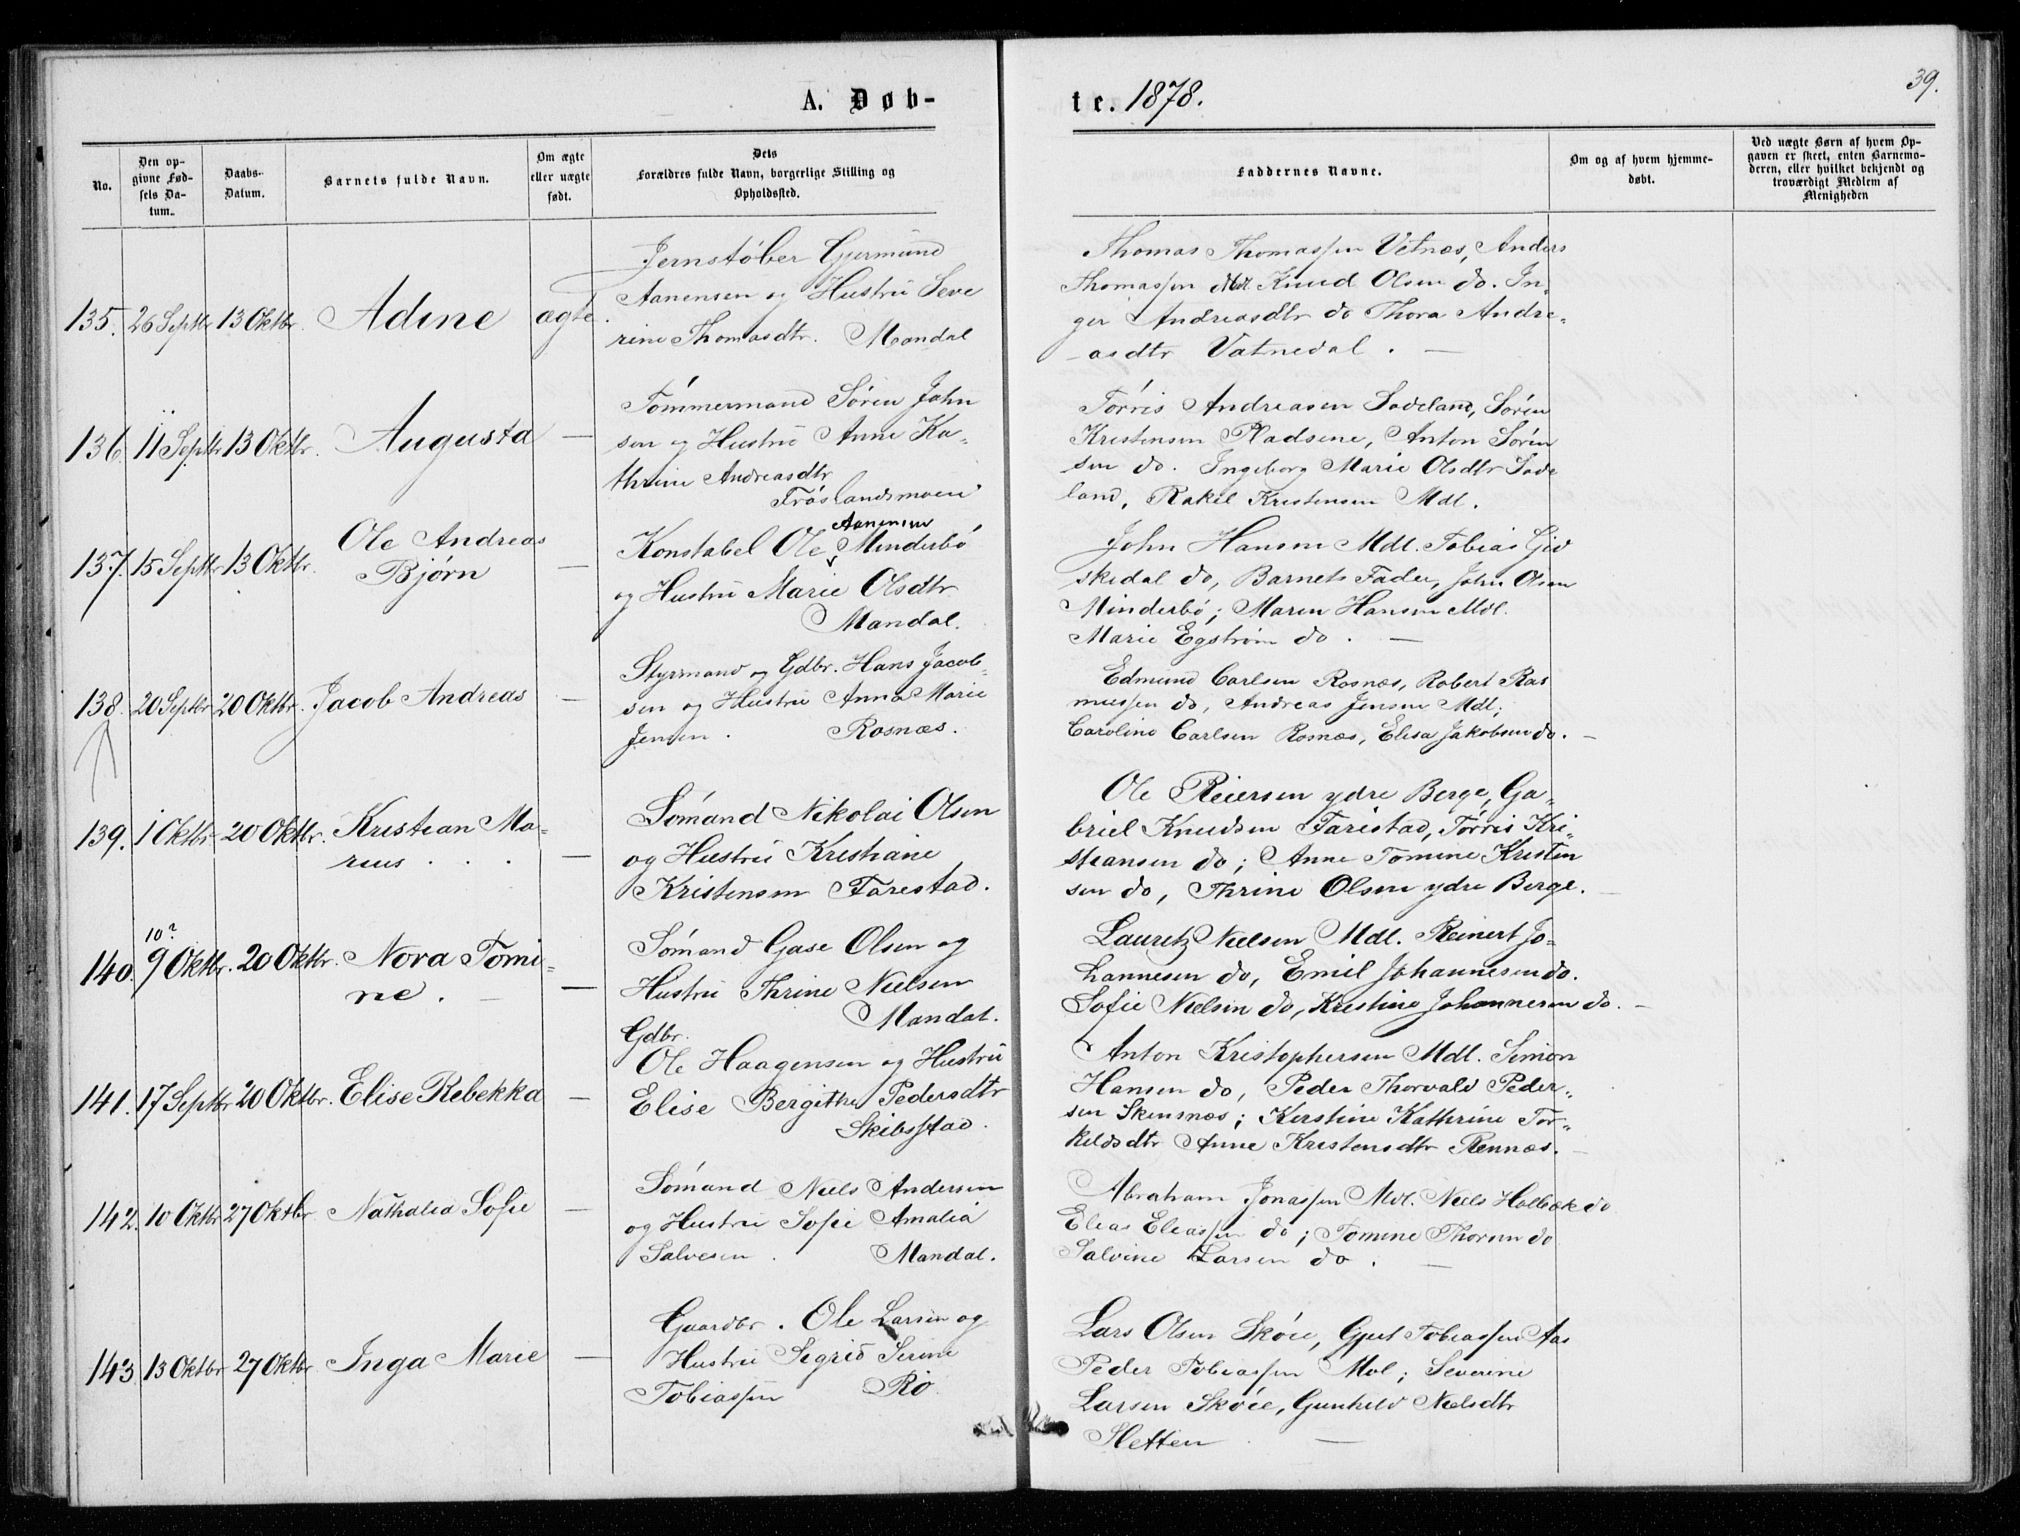 39.
A. Døb-
te. 1878.
No.
Den op-
givne Fød-
sels Da-
tum.
Daabs-
Datum.
Barnets fulde Navn.
Om ægte
eller uægte
født.
Dets
Forældres fulde Navn, borgerlige Stilling og
Opholdssted.
Faddernes Navne.
Om og af hvem hjemme-
døbt.
Ved uægte Børn af hvem Op-
gaven er skeet, enten Barnemo-
deren, eller hvilket bekjendt og
troværdigt Medlem af
Menigheden
135. 26 Septbr 13 Oktbr. Adine ægte.
Jernstøber Gjermund
Aanensen og Hustru Seve
rine Thomasdtr. Mandal
Thomas Thomassen Vetnes, Anders
Thomassen Mdl Knud Olsen do. In-
ger Andreasdtr do Thora Andre-
asdtr Vatnedal. —
136 11 Septbr 13 Oktbr. Augusta —
Tømmermand Søren John
sen og Hustru Anne Ka-
thrine Andreasdtr
Frøslandsmoen
Tørris Andreasen Sodeland, Søren
Kristensen Pladsene, Anton Søren
sen do. Ingeborg Marie Olsdtr Sode
land, Rakel Kristensen Mdl.
137. 15 Septbr 13 Oktbr. Ole Andreas
Bjørn —
Aanensen
Konstabel Ole Minderbø
og Hustru Marie Olsdtr
Mandal.
John Hansen Mdl. Tobias Gid
skedal do, Barnets Fader, John Olsen
Minderbø; Maren Hansen Mdl.
Marie Egstrøm do. —
138. 20 Septbr 20 Oktbr. Jacob Andreas —
Styrmand og Gdbr. Hans Jacob-
sen og Hustru Anna Marie
Jensen. Rosnæs.
Edmund Carlsen Rosnæs, Robert Ras
mussen do, Andreas Jensen Mdl;
Caroline Carlsen Rosnæs, Elisa Jakobsen do. —
139. 1 Oktbr 20 Oktbr. Kristian Ma-
rius . . —
Sømand Nikolai Olsen
og Hustru Kristiane
Kristensen Farestad.
Ole Reiersen ydre Berge, Ga-
briel Knudsen Farestad, Tørris Kri-
stiansen do; Anne Tomine Kristen
sen do, Thrine Olsen ydre Berge. —
10?
140. 9 Oktbr. 20 Oktbr. Nora Tomi-
ne. —
Sømand Gase Olsen og
Hustru Thrine Nielsen
Mandal.
Lauretz Nielsen Mdl. Reinert Jo-
hannesen do, Emil Johannesen do.
Sofie Nielsen do, Kristine Johannesen do. —
141. 17 Septbr 20 Oktbr. Elise Rebekka —
Gdbr.
Ole Haagensen og Hustru
Elise Bergithe Pedersdtr
Skibsstad.
Anton Kristophersen Mdl. Simon
Hansen do, Peder Thorvald Peder-
sen Skinsnæs; Kirstine Kathrine Tor-
keldsdtr Anne Kristensdtr Rennæs. —
142. 10 Oktbr 27 Oktbr. Nathalia Sofie —
Sømand Niels Andersen
og Hustru Sofie Amalia
Salvesen. Mandal.
Abraham Jonassen Mdl. Niels Holbæk do
Elias Eliassen do; Tomine Thorsen do
Salvine Larsen do. —
143. 13 Oktbr 27 Oktbr. Inga Marie —
Gaardbr. Ole Larsen og
Hustru Sigrid Serine
Tobiassen Rio
Lars Olsen Skøie, Gjert Tobiassen Aas
Peder Tobiassen Mdl; Severine
Larsen Skøie, Gunhild Nielsdtr
Sletten —